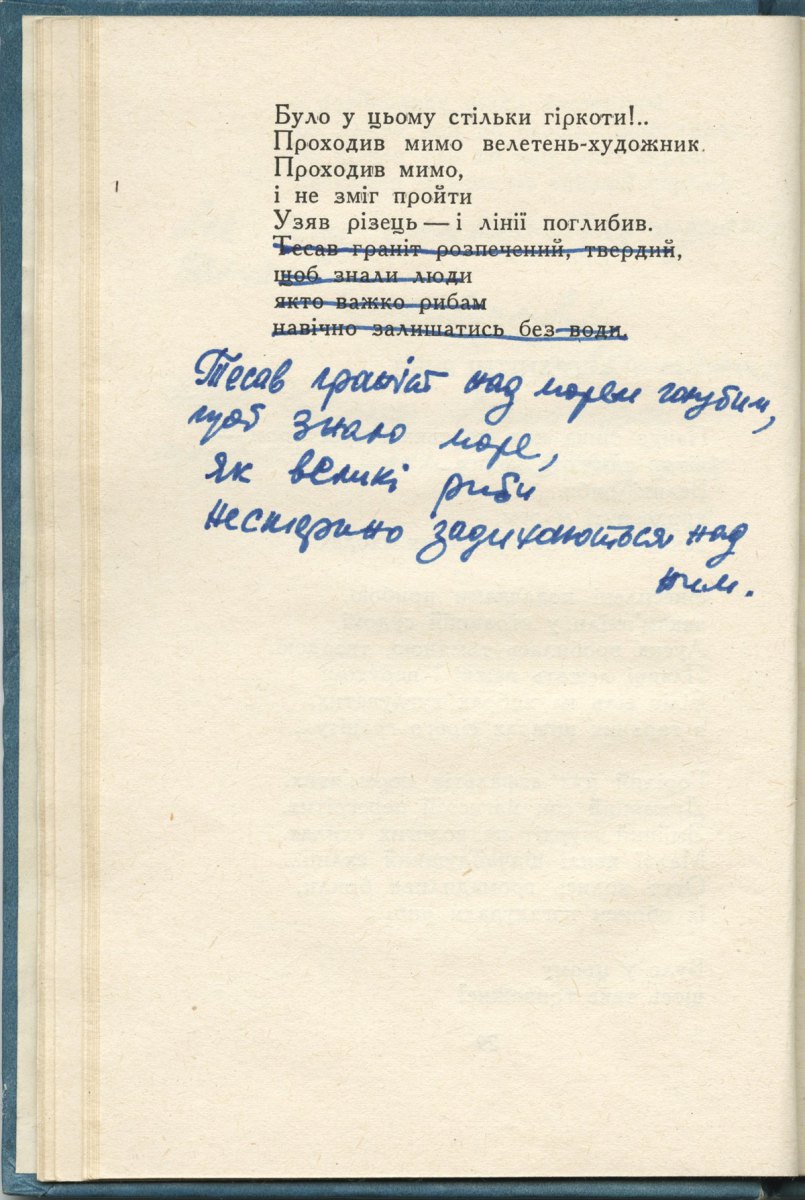 Було у цьому стільки гіркоти!..
Проходив мимо велетень-художник.
Проходив мимо,
і не зміг пройти
Узяв різець — і лінії поглибив.
Тесав граніт розпечений, твердий,
щоб знали люди
якто важко рибам
навічно залишатись без води.
Тесав граніт над морем голубим,
щоб знало море,
як великі риби
нестерпно задихаються над
ним.